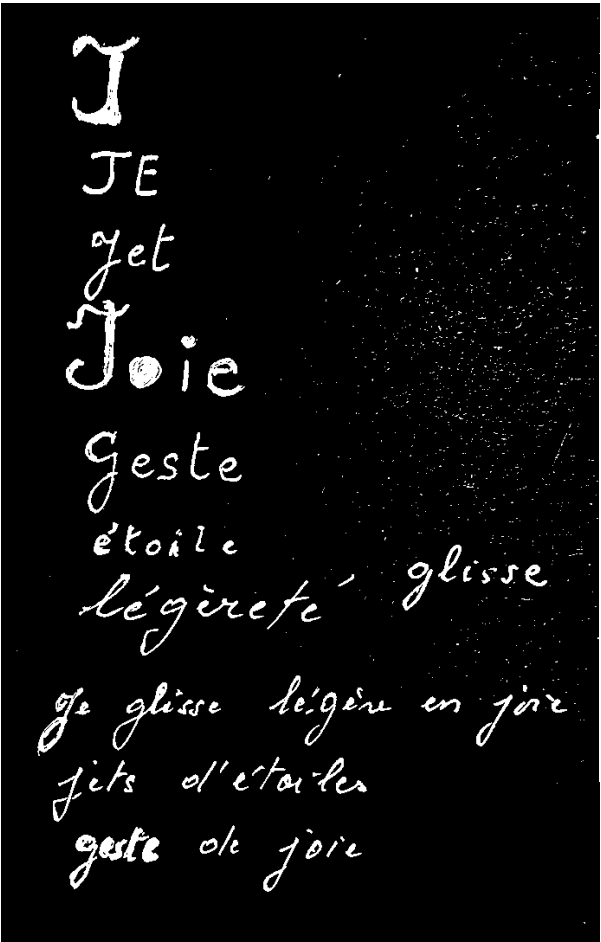 J
JE
Jet
Joie
Geste
étoile
glisse
légèreté
Je glisse légère en joie
jets d'étoiles
geste de joie